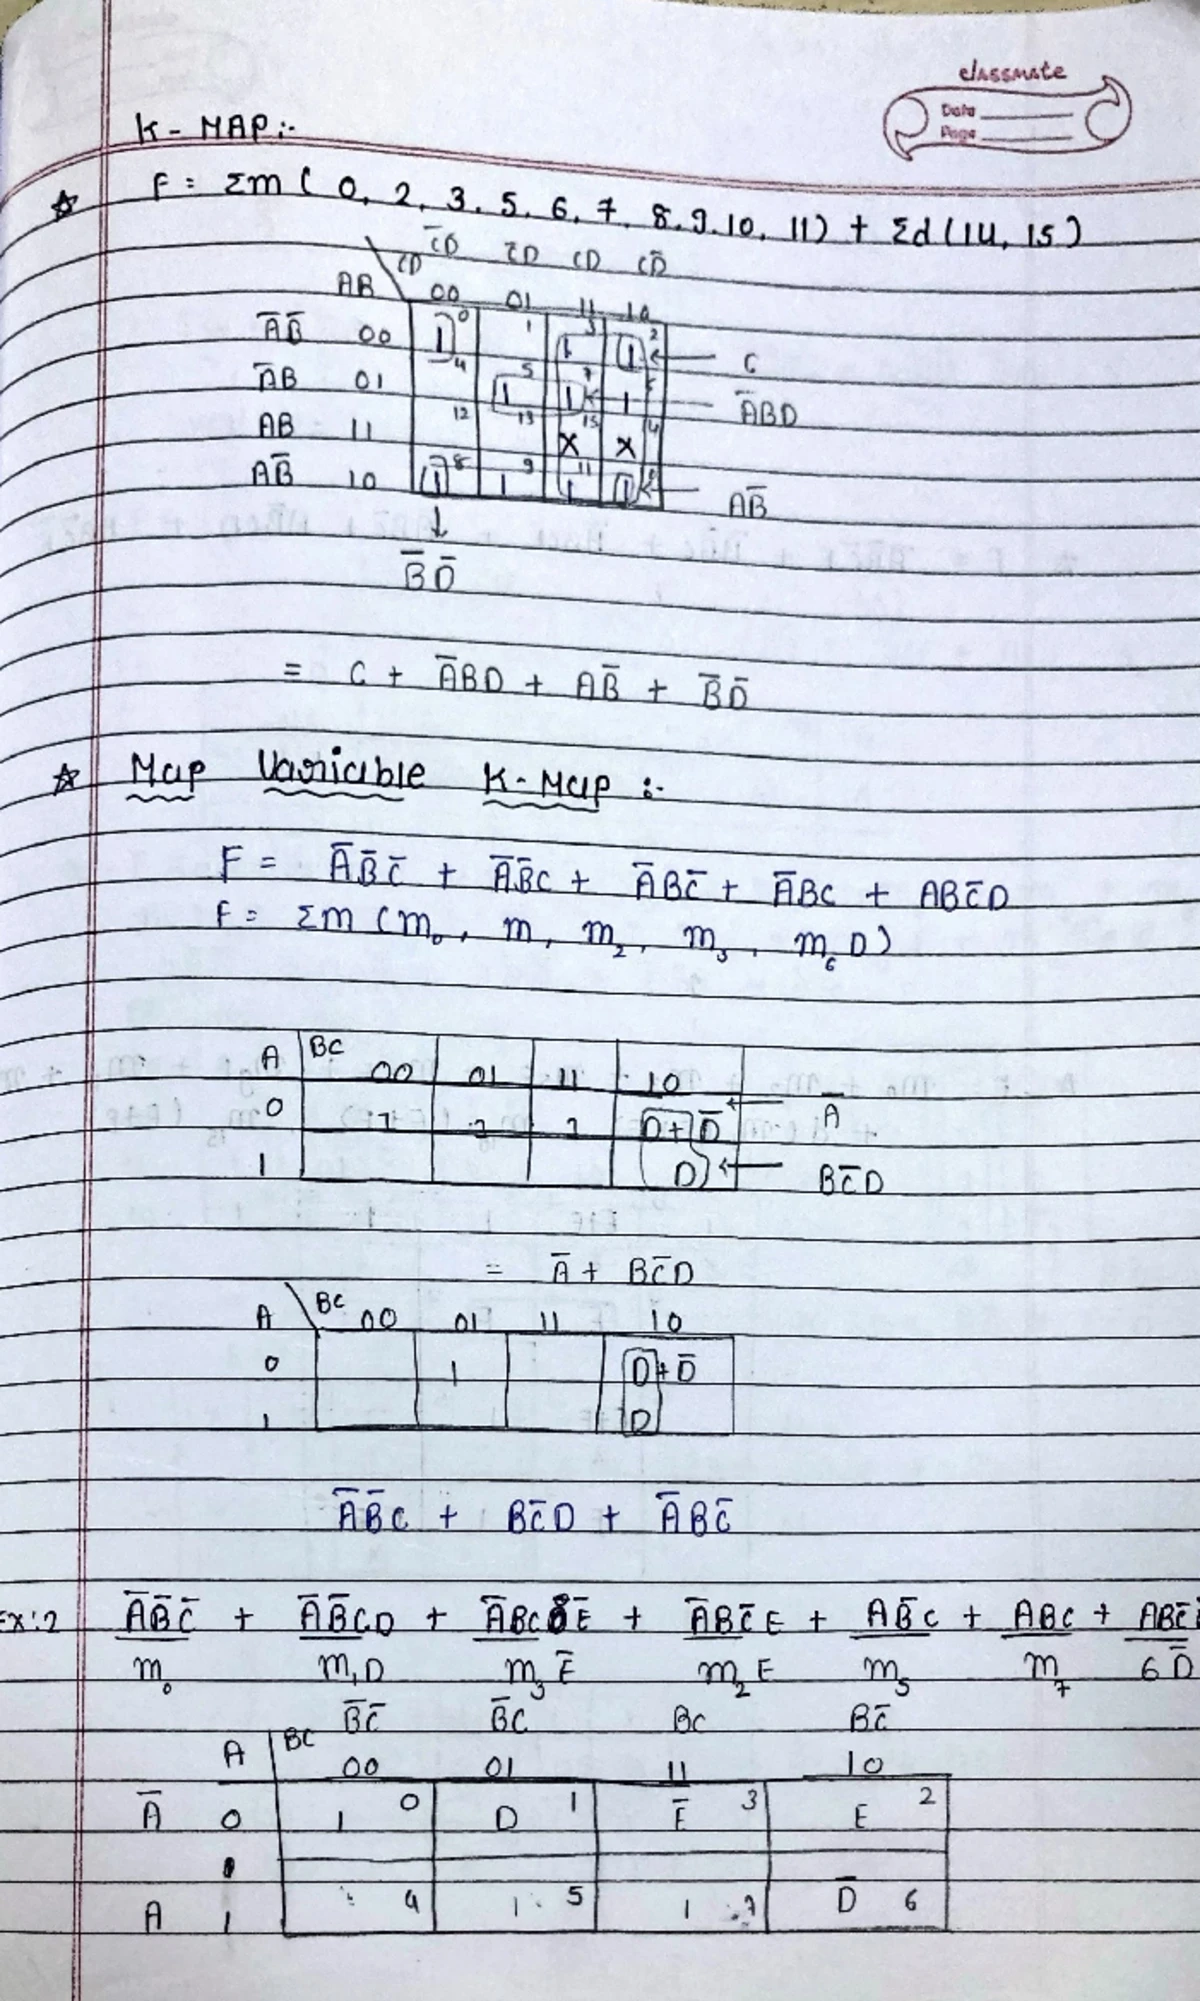 classmate
Date
Page
K - MAP :-
F = Σm ( 0, 2, 3, 5, 6, 7, 8, 9, 10, 11) + Σd (14, 15)
C̅D̅ C̅D CD CD̅
AB CD 00 01 11 10
A̅B̅ 00 1 0 1 1 3 1 2 ← C
A̅B 01 4 1 5 1 7 1 6 ← A̅BD
AB 11 12 13 X 15 X 14
AB̅ 10 1 8 1 9 1 11 1 10 ← AB̅
↓
B̅D̅
= C + A̅BD + AB̅ + B̅D̅
Map Variable K-Map :-
F = A̅B̅C̅ + A̅B̅C + A̅BC̅ + A̅BC + ABC̅D
F = Σm (m₀, m, m₂, m₃, m₆D)
A BC 00 01 11 10
0 1 1 1 D+D̅ ← A̅
1 D ← BC̅D
= A̅ + BC̅D
A BC 00 01 11 10
0 1 D+D̅
1 D
A̅B̅C + BC̅D + A̅BC̅
Ex:2 A̅B̅C̅ + A̅B̅CD + A̅BCE̅ + A̅BC̅E + AB̅C + ABC + ABC̅
m₀ m₁D m₃E̅ m₂E m₅ m₇ 6D̅
B̅C̅ B̅C BC BC̅
A BC 00 01 11 10
A̅ 0 1 0 D 1 E̅ 3 E 2
A 1 4 1 5 1 7 D̅ 6